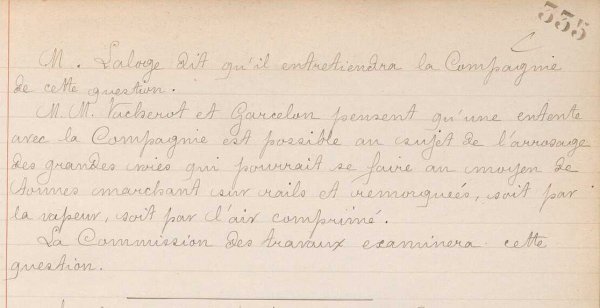 335
M. Laloge dit qu'il entretiendra la Compagnie
de cette question.
M. M. Vacherot et Garcelon pensent qu'une entente
avec la Compagnie est possible au sujet de l'arrosage
des grandes voies qui pourrait se faire au moyen de
tonnes marchant sur rails et remorquées, soit par
la vapeur, soit par l'air comprimé.
La Commission des travaux examinera cette
question.